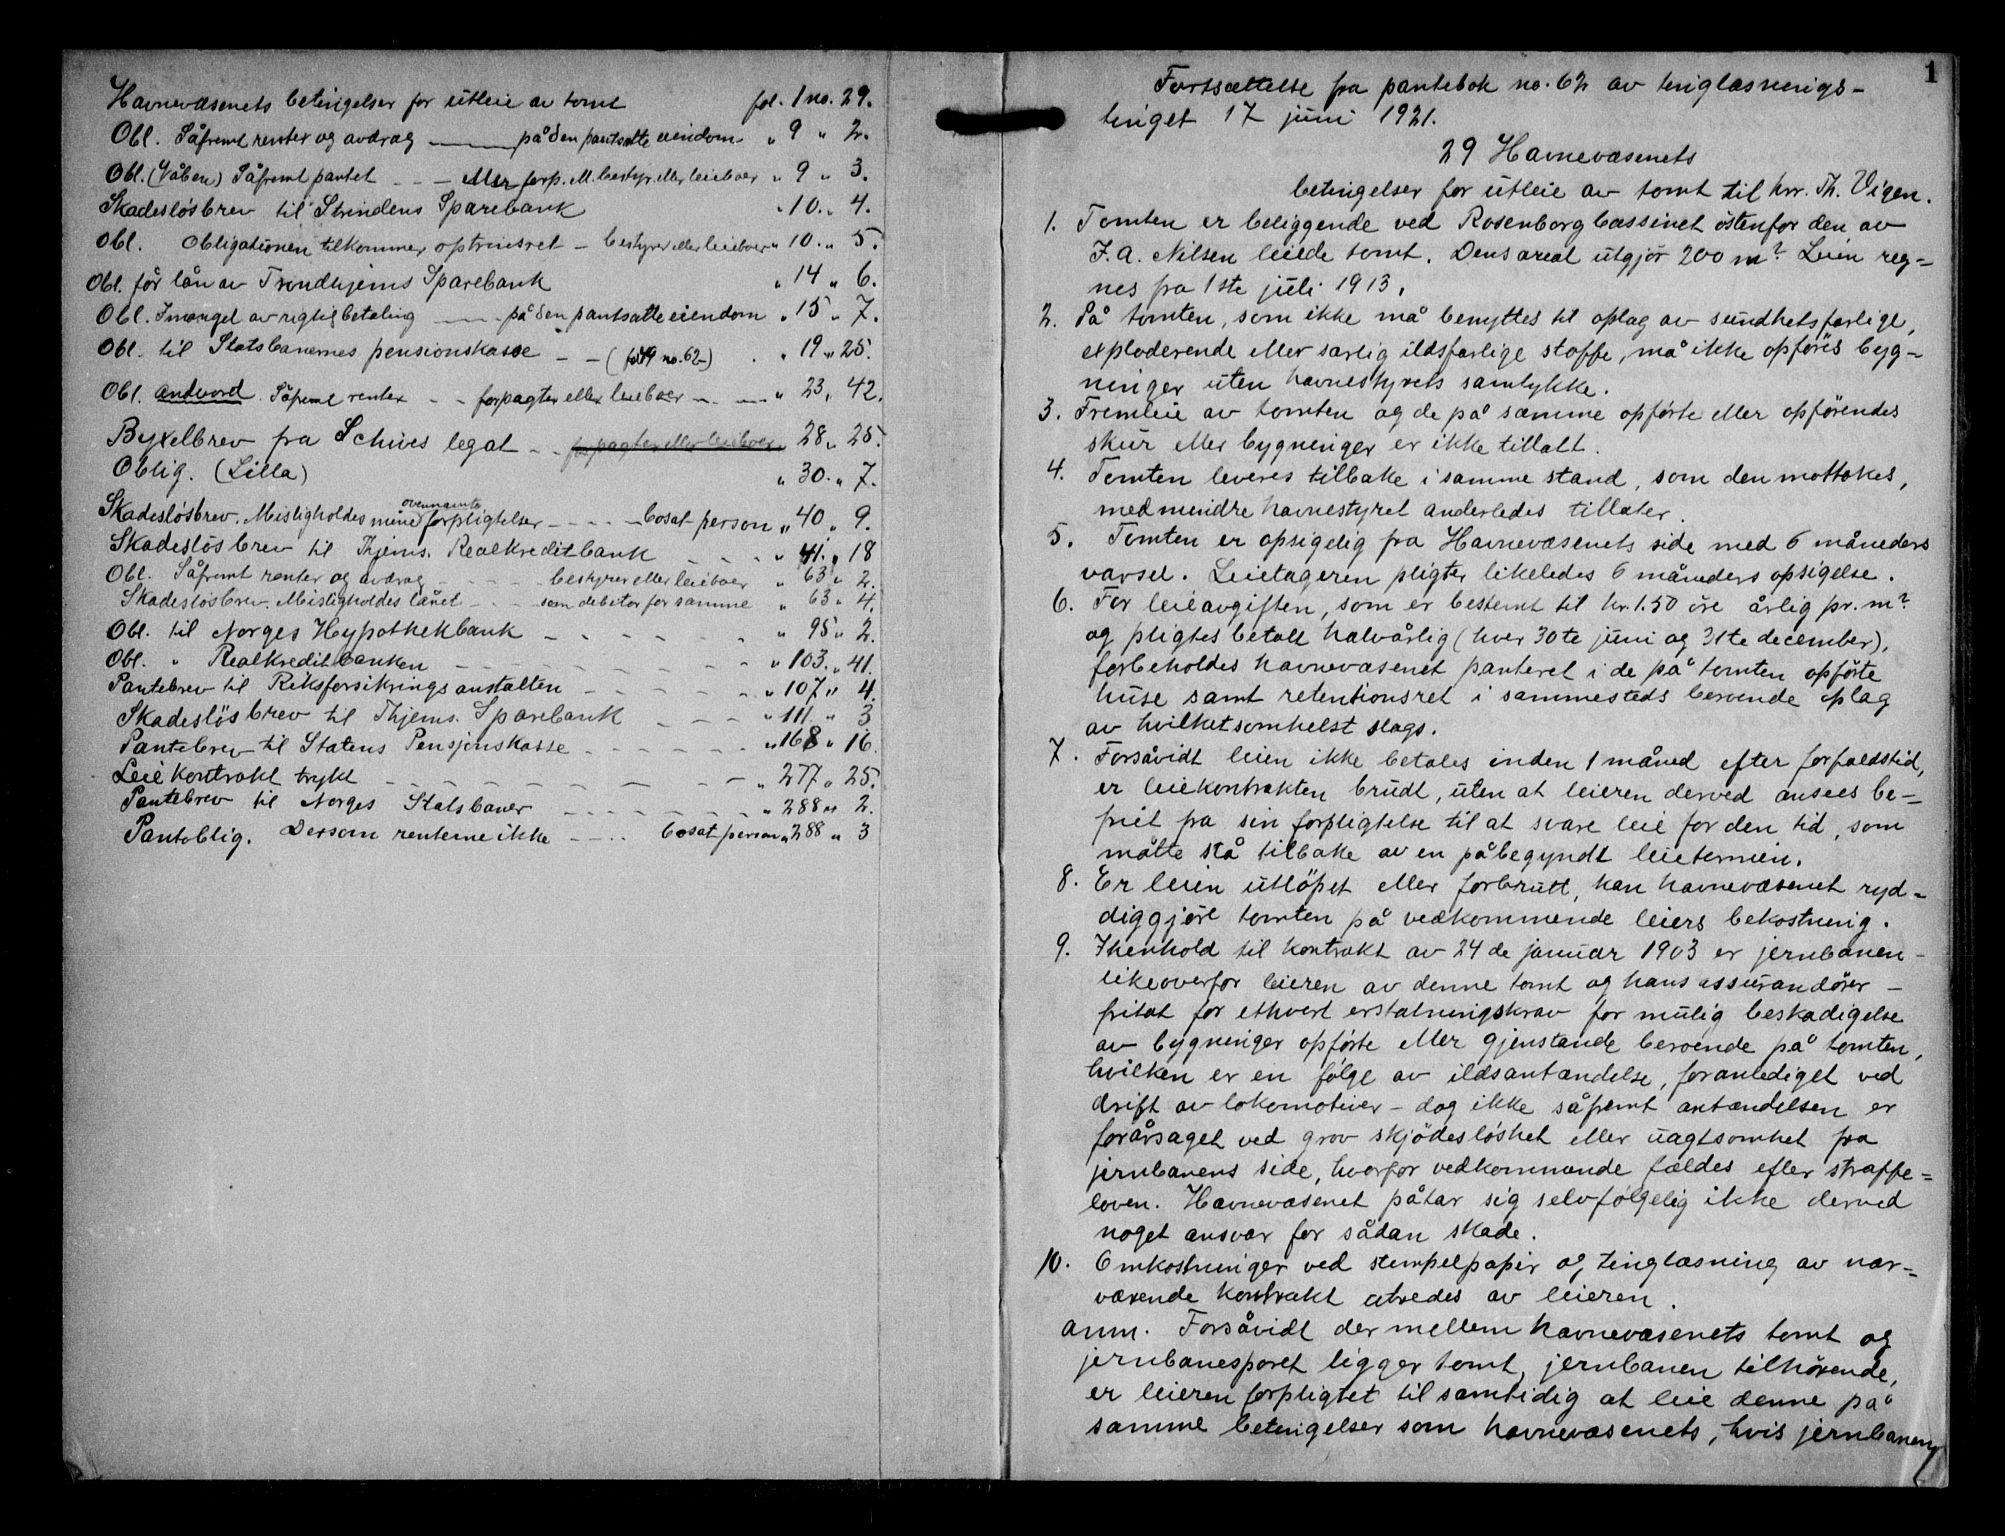 Havnevæsenets betingelser for utleie av tomt fol. 1 no. 29.
Obl. Såfremt renter og avdrag — på den pantsatte eiendom „ 9 „ 2.
Obl. (Våben) Såfremt pantet - - - eller forp. M. bestyr. eller leieboer „ 9 „ 3.
Skadesløsbrev til Strindens Sparebank „ 10. „ 4.
Obl. Obligationen tilkommer optrinsret - bestyrer eller leieboer „ 10. „ 5.
Obl. før lån av Trondhjems Sparebank „ 14 „ 6.
Obl. I mangel av rigtig betaling — på den pantsatte eiendom „ 15 „ 7.
Obl. til Statsbanernes pensionskasse - - (fol 19 no. 62-) „ 19 „ 25.
Obl. Andvord. Såfremt renter - - forpagter eller leieboer - - „ 23. 42.
Byxelbrev fra Schives legat - - forpagter eller leieboer „ 28 „ 25.
Oblig. (Lilla) „ 30. „ 7.
Skadesløsbrev. Misligholdes mine ovennævnte forpligtelser - - - - bosat person „ 40 „ 9.
Skadesløsbrev til Thjems. Realkreditbank - - - „ 41. „ 18
Obl. Såfremt renter og avdrag - - - - bestyrer eller leieboer „ 63 „ 2.
Skadesløsbrev. Misligholdes lånet - - - som debitor for samme „ 63 „ 4.
Obl. til Norges Hypothekbank - - - - - „ 95 „ 2.
Obl. „ Realkreditbanken - - - - - - - „ 103. „ 41.
Pantebrev til Riksforsikringsanstalten - - - - „ 107 „ 4.
Skadesløsbrev til Thjems. Sparebank - - - „ 111. „ 3
Pantebrev til Statens Pensjonskasse - - - - - „ 168 „ 16.
Leiekontrakt trykt - - - - - - - - „ 277 „ 25.
Pantebrev til Norges Statsbaner - - - - - - „ 288 „ 2.
Pantoblig. Dersom renterne ikke - - - - bosat person „ 288 „ 3
1
Fortsættelse fra pantebok no. 62 av tinglæsnings-
tinget 17 juni 1921.
29 Havnevæsenets
betingelser for utleie av tomt til hrr. Th. Vigen.
1. Tomten er beliggende ved Rosenborgbassinet østenfor den av
J. A. Nilsen leiede tomt. Dens areal utgjør 200 m². Leien reg=
nes fra 1ste juli 1913.
2. På tomten, som ikke må benyttes til oplag av sundhetsfarlige,
exploderende eller særlig ildsfarlige stoffe, må ikke opføres byg-
ninger uten havnestyrets samtykke.
3. Fremleie av tomten og de på samme opførte eller opførendes
skur eller bygninger er ikke tillatt.
4. Tomten leveres tilbake i samme stand, som den mottokes,
medmindre havnestyret anderledes tillater.
5. Tomten er opsigelig fra Havnevæsenets side med 6 måneders
varsel. Leietageren pligter likeledes 6 måneders opsigelse.
6. For leieavgiften, som er bestemt til kr. 1.50 øre årlig pr. m²
og pligtes betalt halvårlig (hver 30te juni og 31te december),
forbeholdes havnevæsenet panteret i de på tomten opførte
huse samt retentionsret i sammesteds beroende oplag
av hvilketsomhelst slags.
7. Forsåvidt leien ikke betales inden 1 måned efter forfaldstid,
er leiekontrakten brudt, uten at leieren derved ansees be-
friet fra sin forpligtelse til at svare leie for den tid, som
måtte stå tilbake av en påbegyndt leietermin.
8. Er leien utløpet eller forbrutt, kan havnevæsenet ryd=
diggjøre tomten på vedkommende leiers bekostning.
9. I henhold til kontrakt av 24de januar 1903 er jernbanen -
likeoverfor leieren av denne tomt og hans assurandører -
fritat for ethvert erstatningskrav for mulig beskadigelse
av bygninger opførte eller gjenstande beroende på tomten,
hvilken er en følge av ildsantændelse, foranlediget ved
drift av lokomotiver - dog ikke såfremt antændelsen er
forårsaget ved grov skjødesløshet eller uagtsomhet fra
jernbanens side, hvorfor vedkommende fældes efter straffe=
loven. Havnevæsenet påtar sig selvfølgelig ikke derved
noget ansvar for sådan skade.
10. Omkostninger ved stempelpapir og tinglæsning av nær=
værende kontrakt utredes av leieren.
Anm. Forsåvidt der mellem havnevæsenets tomt og
jernbanesporet ligger tomt, jernbanen tilhørende,
er leieren forpligtet til samtidig at leie denne på
samme betingelser som havnevæsenets, hvis jernbanen